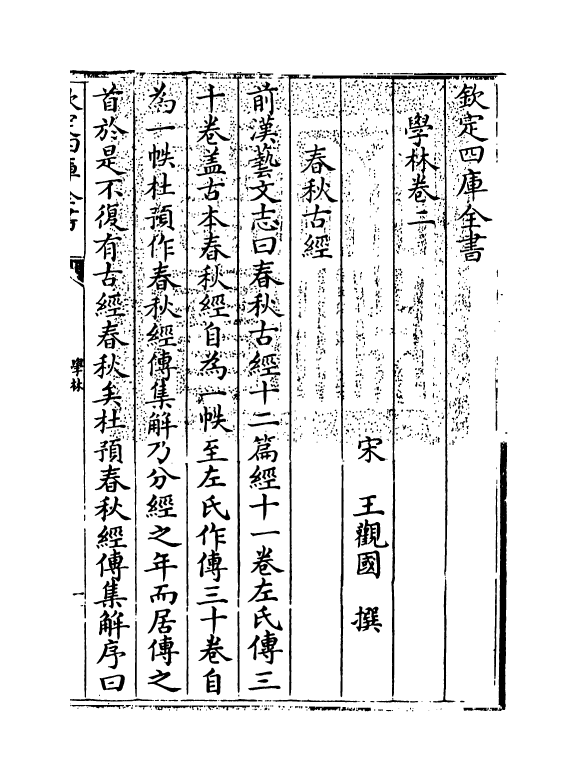 欽定四庫全書
學林卷二
宋 王觀國 撰
春秋古經
前漢藝文志曰春秋古經十二篇經十一卷左氏傳三
十卷盖古本春秋經自為一帙至左氏作傳三十卷自
為一帙杜預作春秋經傳集解乃分經之年而居傳之
首於是不復有古經春秋矣杜預春秋經傳集解序曰
欽定四庫全書
學林
一